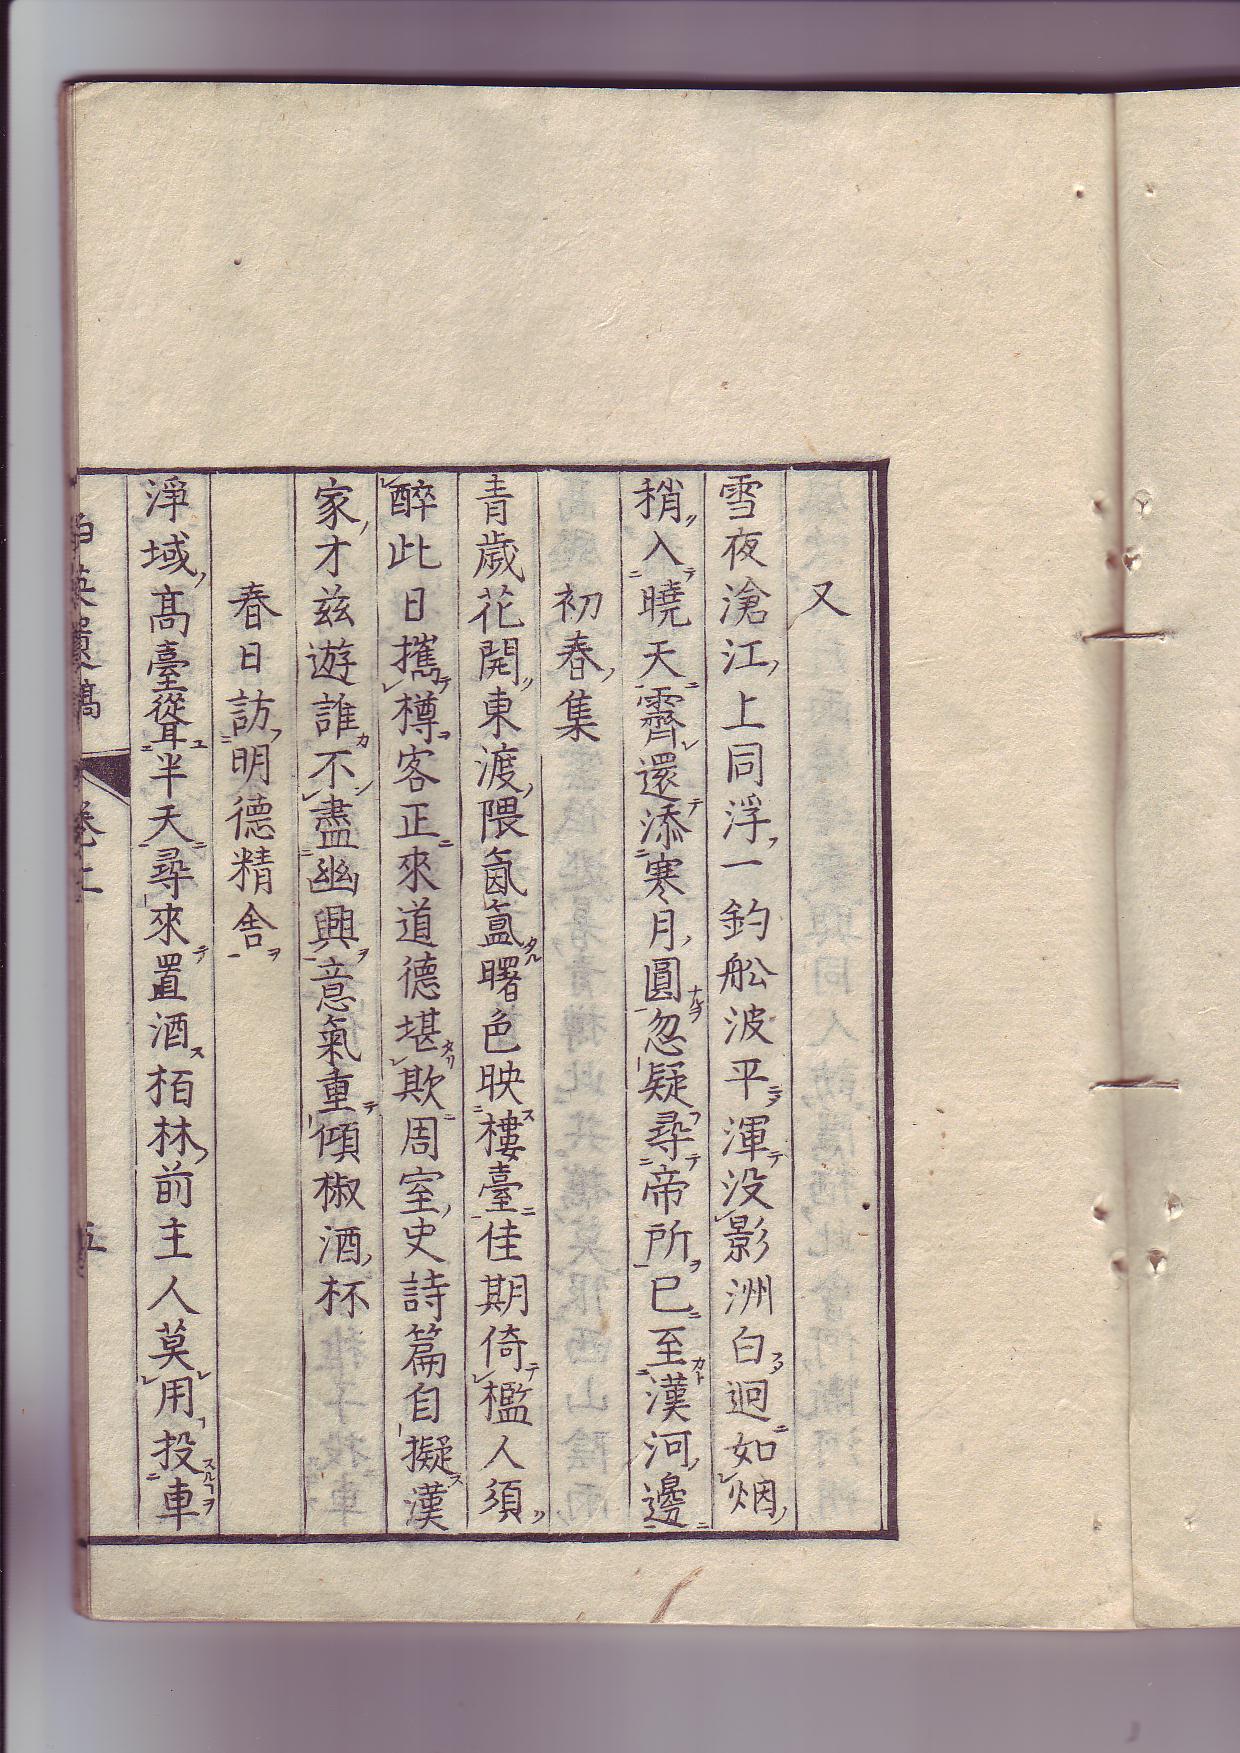 又
雪夜滄江上同浮一釣舩波平渾没影洲白迥如烟
稍入曉天霽還添寒月圓忽疑尋帝所已至漢河邊
初春集
青歲花開東渡隈氤氳曙色映樓臺佳期倚檻人須
醉此日攜樽客正來道德堪欺周室史詩篇自擬漢
家才茲遊誰不盡幽興意氣重傾椒酒杯
春日訪明德精舍
淨域高臺聳半天尋來置酒栢林前主人莫用投車
遺稿 卷二 五